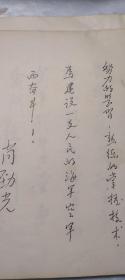 努力的学习，熟练的掌握技术。
为建设一支人民的海军空军
而奋斗！！
肖劲光